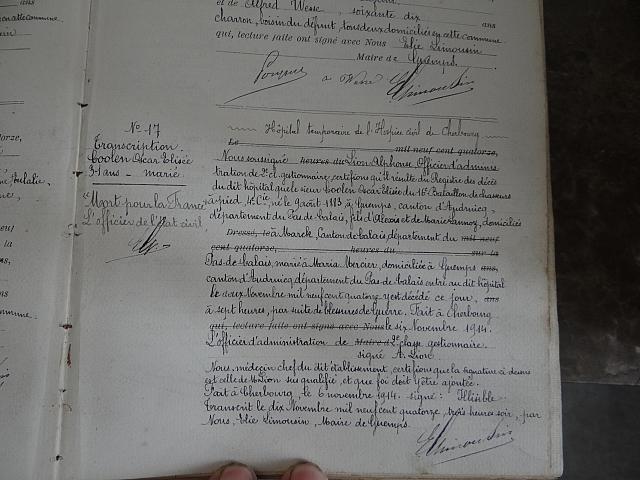 et de Alfred Wesse, soixante dix ans
charron, voisin du défunt, tous deux domiciliés en cette commune
qui, lecture faite ont signé avec Nous Elie Limousin
Maire de Guemps.
A Wesse
N° 17
Transcription
Coolen Oscar Elisée
31 ans - marié
"Mort pour la France"
L'officier de l'état civil
Hôpital temporaire de l'Hospice civil de Cherbourg
Le mil neuf cent quatorze,
Nous soussigné heures du Lion Alphonse Officier d'adminis
tration de 2e cl. gestionnaire, certifions qu'il résulte du Registre des décès
du dit hôpital que le sieur Coolen Oscar Elisée du 16e Bataillon de chasseurs
à pied, 4e Cie, né le 9 août 1883 à Guemps, canton d'Audruicq,
département du Pas de Calais, fils d'Alexis et de Marie Lannoy, domiciliés
Dressé, le à Marck, Canton de Calais, département du mil neuf
cent quatorze, heures du sur la
Pas-de-Calais, marié à Maria Mercier, domiciliée à Guemps ans,
canton d'Audruicq département du Pas de Calais entré au dit hôpital
le deux Novembre mil neuf cent quatorze y est décédé ce jour, ans
à sept heures, par suite de blessures de Guerre. Fait à Cherbourg
qui, lecture faite ont signé avec Nous le six Novembre 1914.
L'officier d'administration de Maire de 2e classe gestionnaire.
signé A. Lion
Nous, médecin chef du dit établissement, certifions que la signature ci-dessus
est celle de M. Lion su qualifié, et que foi doit y être ajoutée.
Fait à Cherbourg, le 6 novembre 1914. signé: Illisible.
Transcrit le dix Novembre mil neuf cent quatorze, trois heures soir, par
Nous, Elie Limousin, Maire de Guemps.